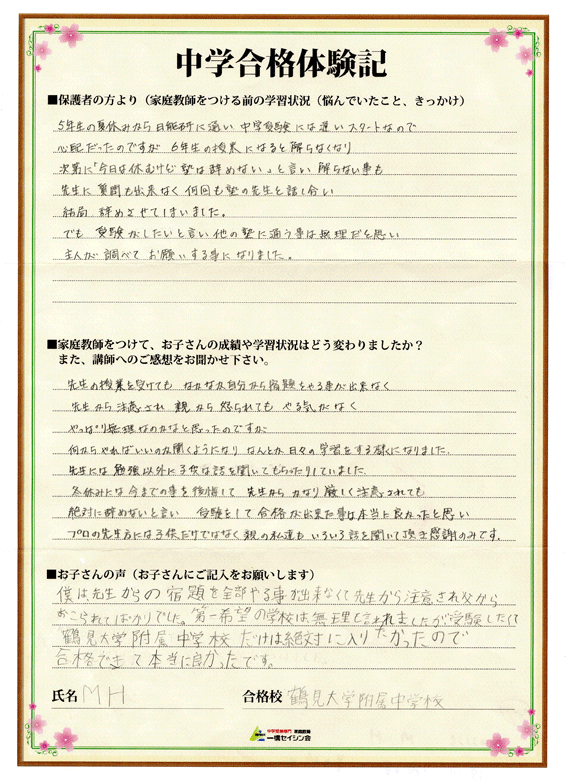 中学合格体験記
■保護者の方より（家庭教師をつける前の学習状況（悩んでいたこと、きっかけ）
5年生の夏休みから日能研に通い 中学受験には遅いスタートなので
心配だったのですが 6年生の授業になると解らなくなり
次第に「今日は休むけど塾は辞めない」と言い 解らない事も
先生に質問も出来なく 何回も塾の先生と話し合い
結局 辞めさせてしまいました。
でも 受験がしたいと言い他の塾に通う事は無理だと思い
主人が調べて お願いする事になりました。
■家庭教師をつけて、お子さんの成績や学習状況はどう変わりましたか？
また、講師へのご感想をお聞かせ下さい。
先生の授業を受けても なかなか自分から宿題をやる事が出来なく
先生から注意され 親から怒られても やる気がなく
やっぱり無理なのかなと思ったのですが
何からやればいいのか聞くようになり なんとか日々の学習をする様になりました。
先生には 勉強以外に子供な話を聞いてもらったりしていました。
冬休みには今までの事を後悔して 先生から かなり厳しく注意されても
絶対に辞めないと言い 受験をして 合格が出来た事は本当に良かったと思い
プロの先生方には子供だけではなく親の私達も いろいろ話を聞いて頂き感謝のみです。
■お子さんの声（お子さんにご記入をお願いします）
僕は先生からの宿題を全部やる事が出来なくて先生から注意され父から
おこられてばかりでした。第一希望の学校は無理と言われましたが受験したくて
鶴見大学附属中学校だけは絶対に入りたかったので
合格できて本当に良かったです。
氏名 MH 合格校 鶴見大学附属中学校
中学受験専門 家庭教師
一橋セイシン会